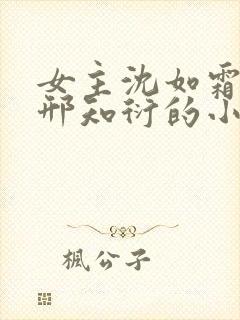 女主沈如霜
邢知衍的小
楓公子